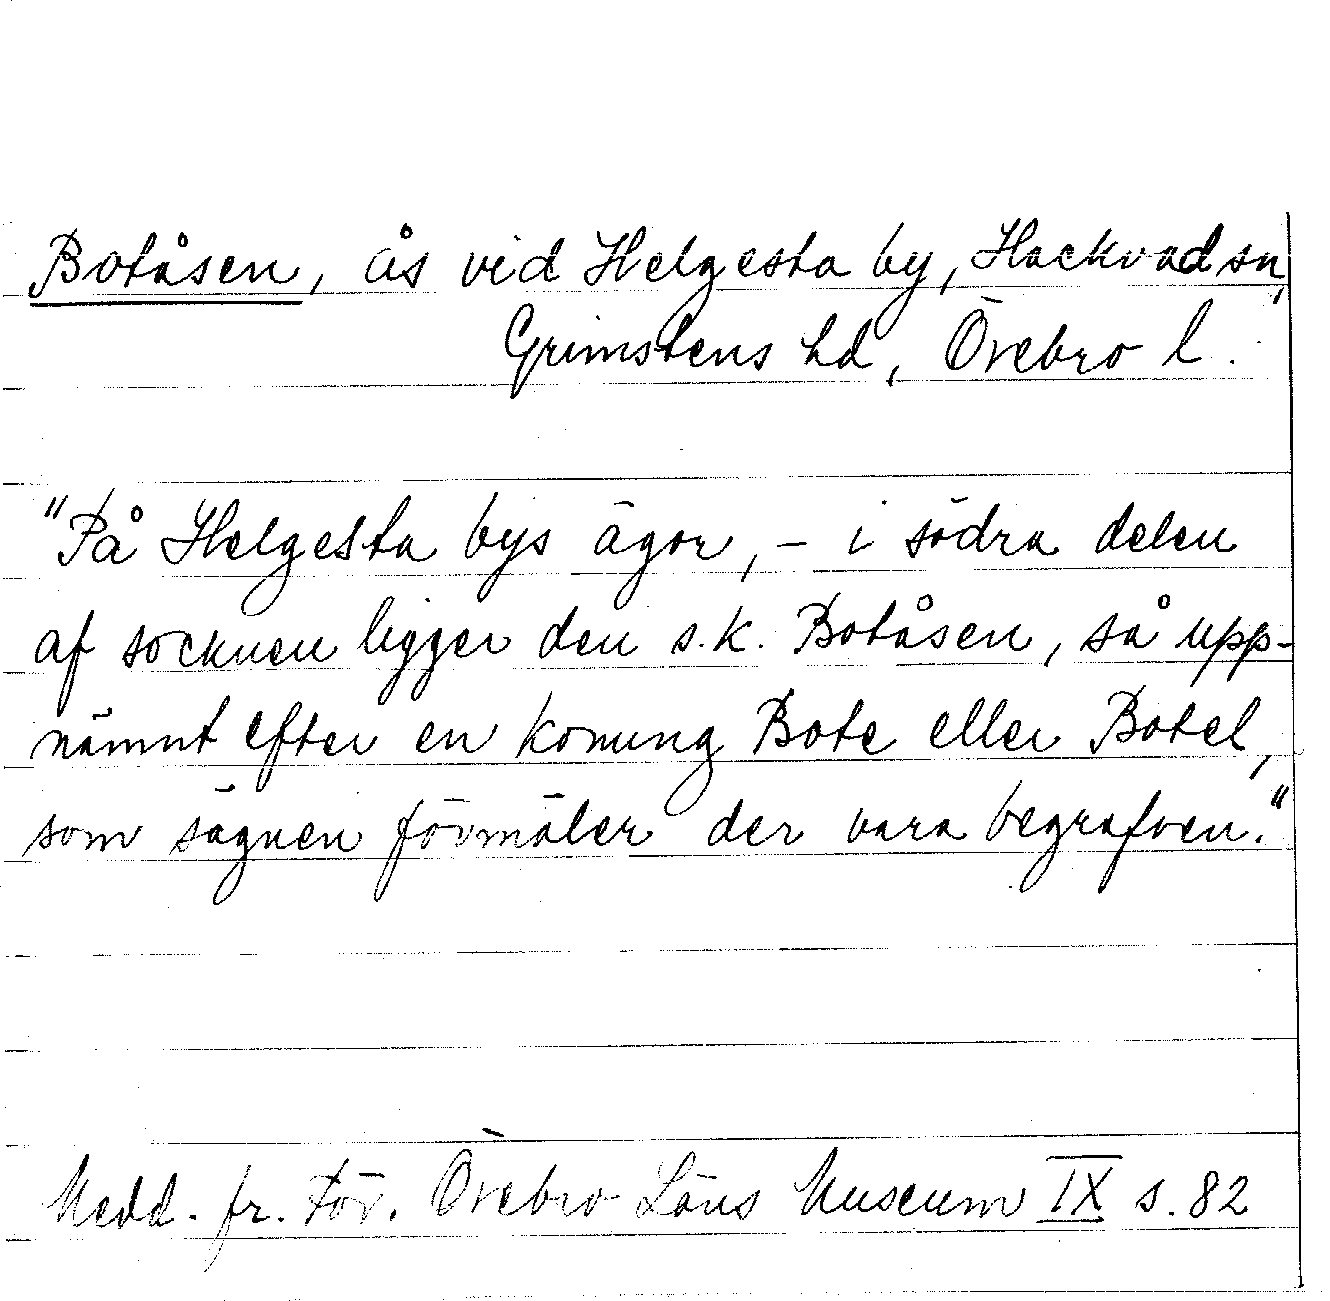 Botåsen, ås vid Helgesta by, Hackvad sn,
Grimstens hd, Örebro l.
"På Helgesta bys ägor, - i södra delen
af socknen ligger den s.k. Botåsen, så upp-
nämnt efter en konung Bote eller Botel,
som sägnen förmäler der vara begrafven."
Medd. fr. För. Örebro Läns Museum IX s. 82